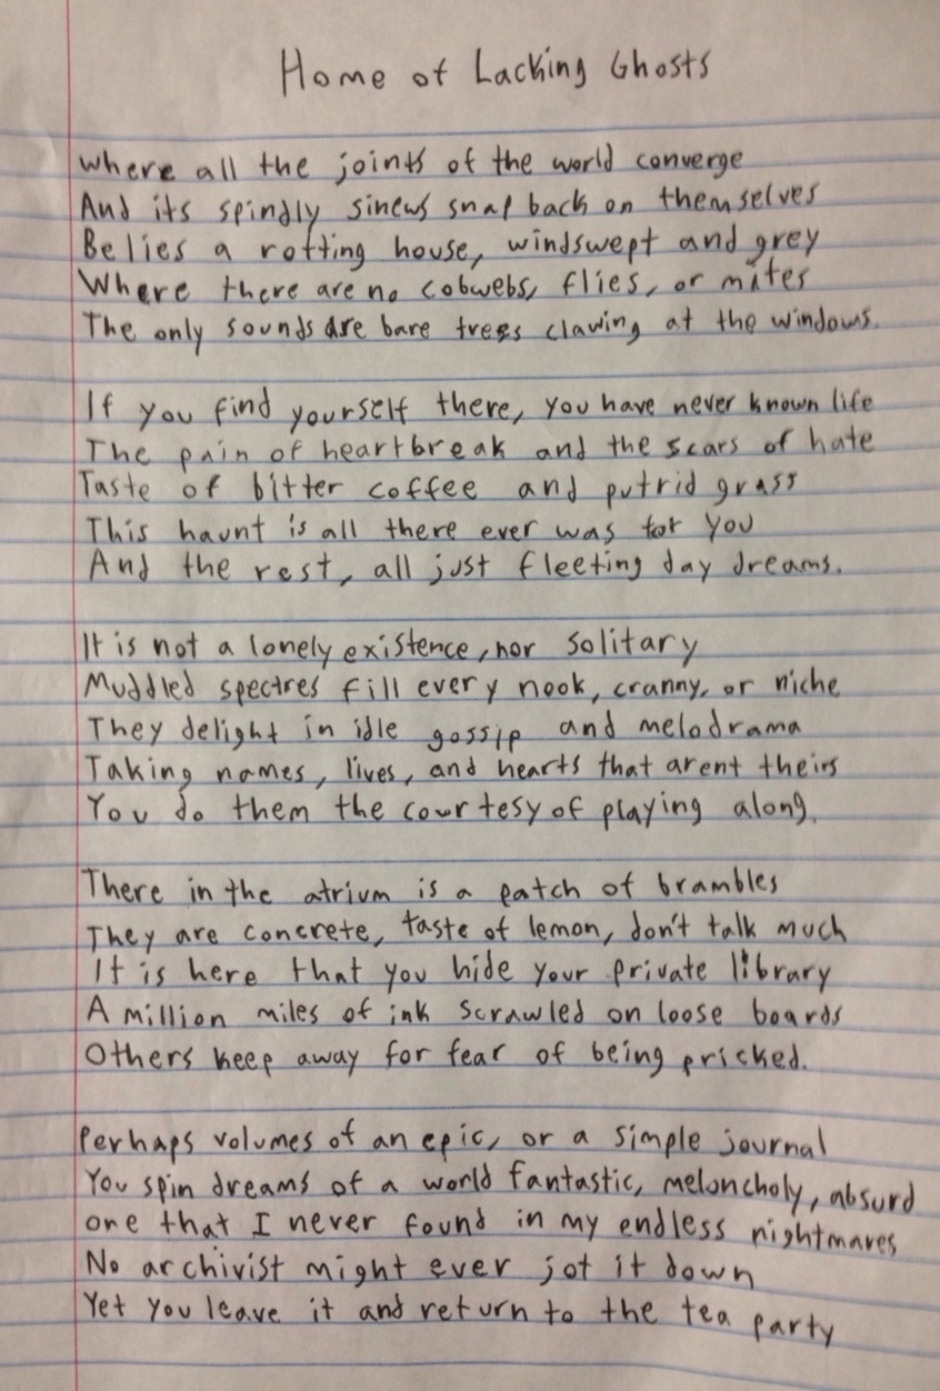 Home of Lacking Ghosts
Where all the joints of the world converge
And its spindly sinews snap back on themselves
Belies a rotting house, windswept and grey
Where there are no cobwebs, flies, or mites
The only sounds are bare trees clawing at the windows.
If you find yourself there, you have never known life
The pain of heartbreak and the scars of hate
Taste of bitter coffee and putrid grass
This haunt is all there ever was for you
And the rest, all just fleeting day dreams.
It is not a lonely existence, nor solitary
Muddled spectres fill every nook, cranny, or niche
They delight in idle gossip and melodrama
Taking names, lives, and hearts that arent theirs
You do them the courtesy of playing along.
There in the atrium is a patch of brambles
They are concrete, taste of lemon, don't talk much
It is here that you hide your private library
A million miles of ink scrawled on loose boards
Others keep away for fear of being pricked.
Perhaps volumes of an epic, or a simple journal
You spin dreams of a world fantastic, meloncholy, absurd
one that I never found in my endless nightmares
No archivist might ever jot it down
Yet you leave it and return to the tea party